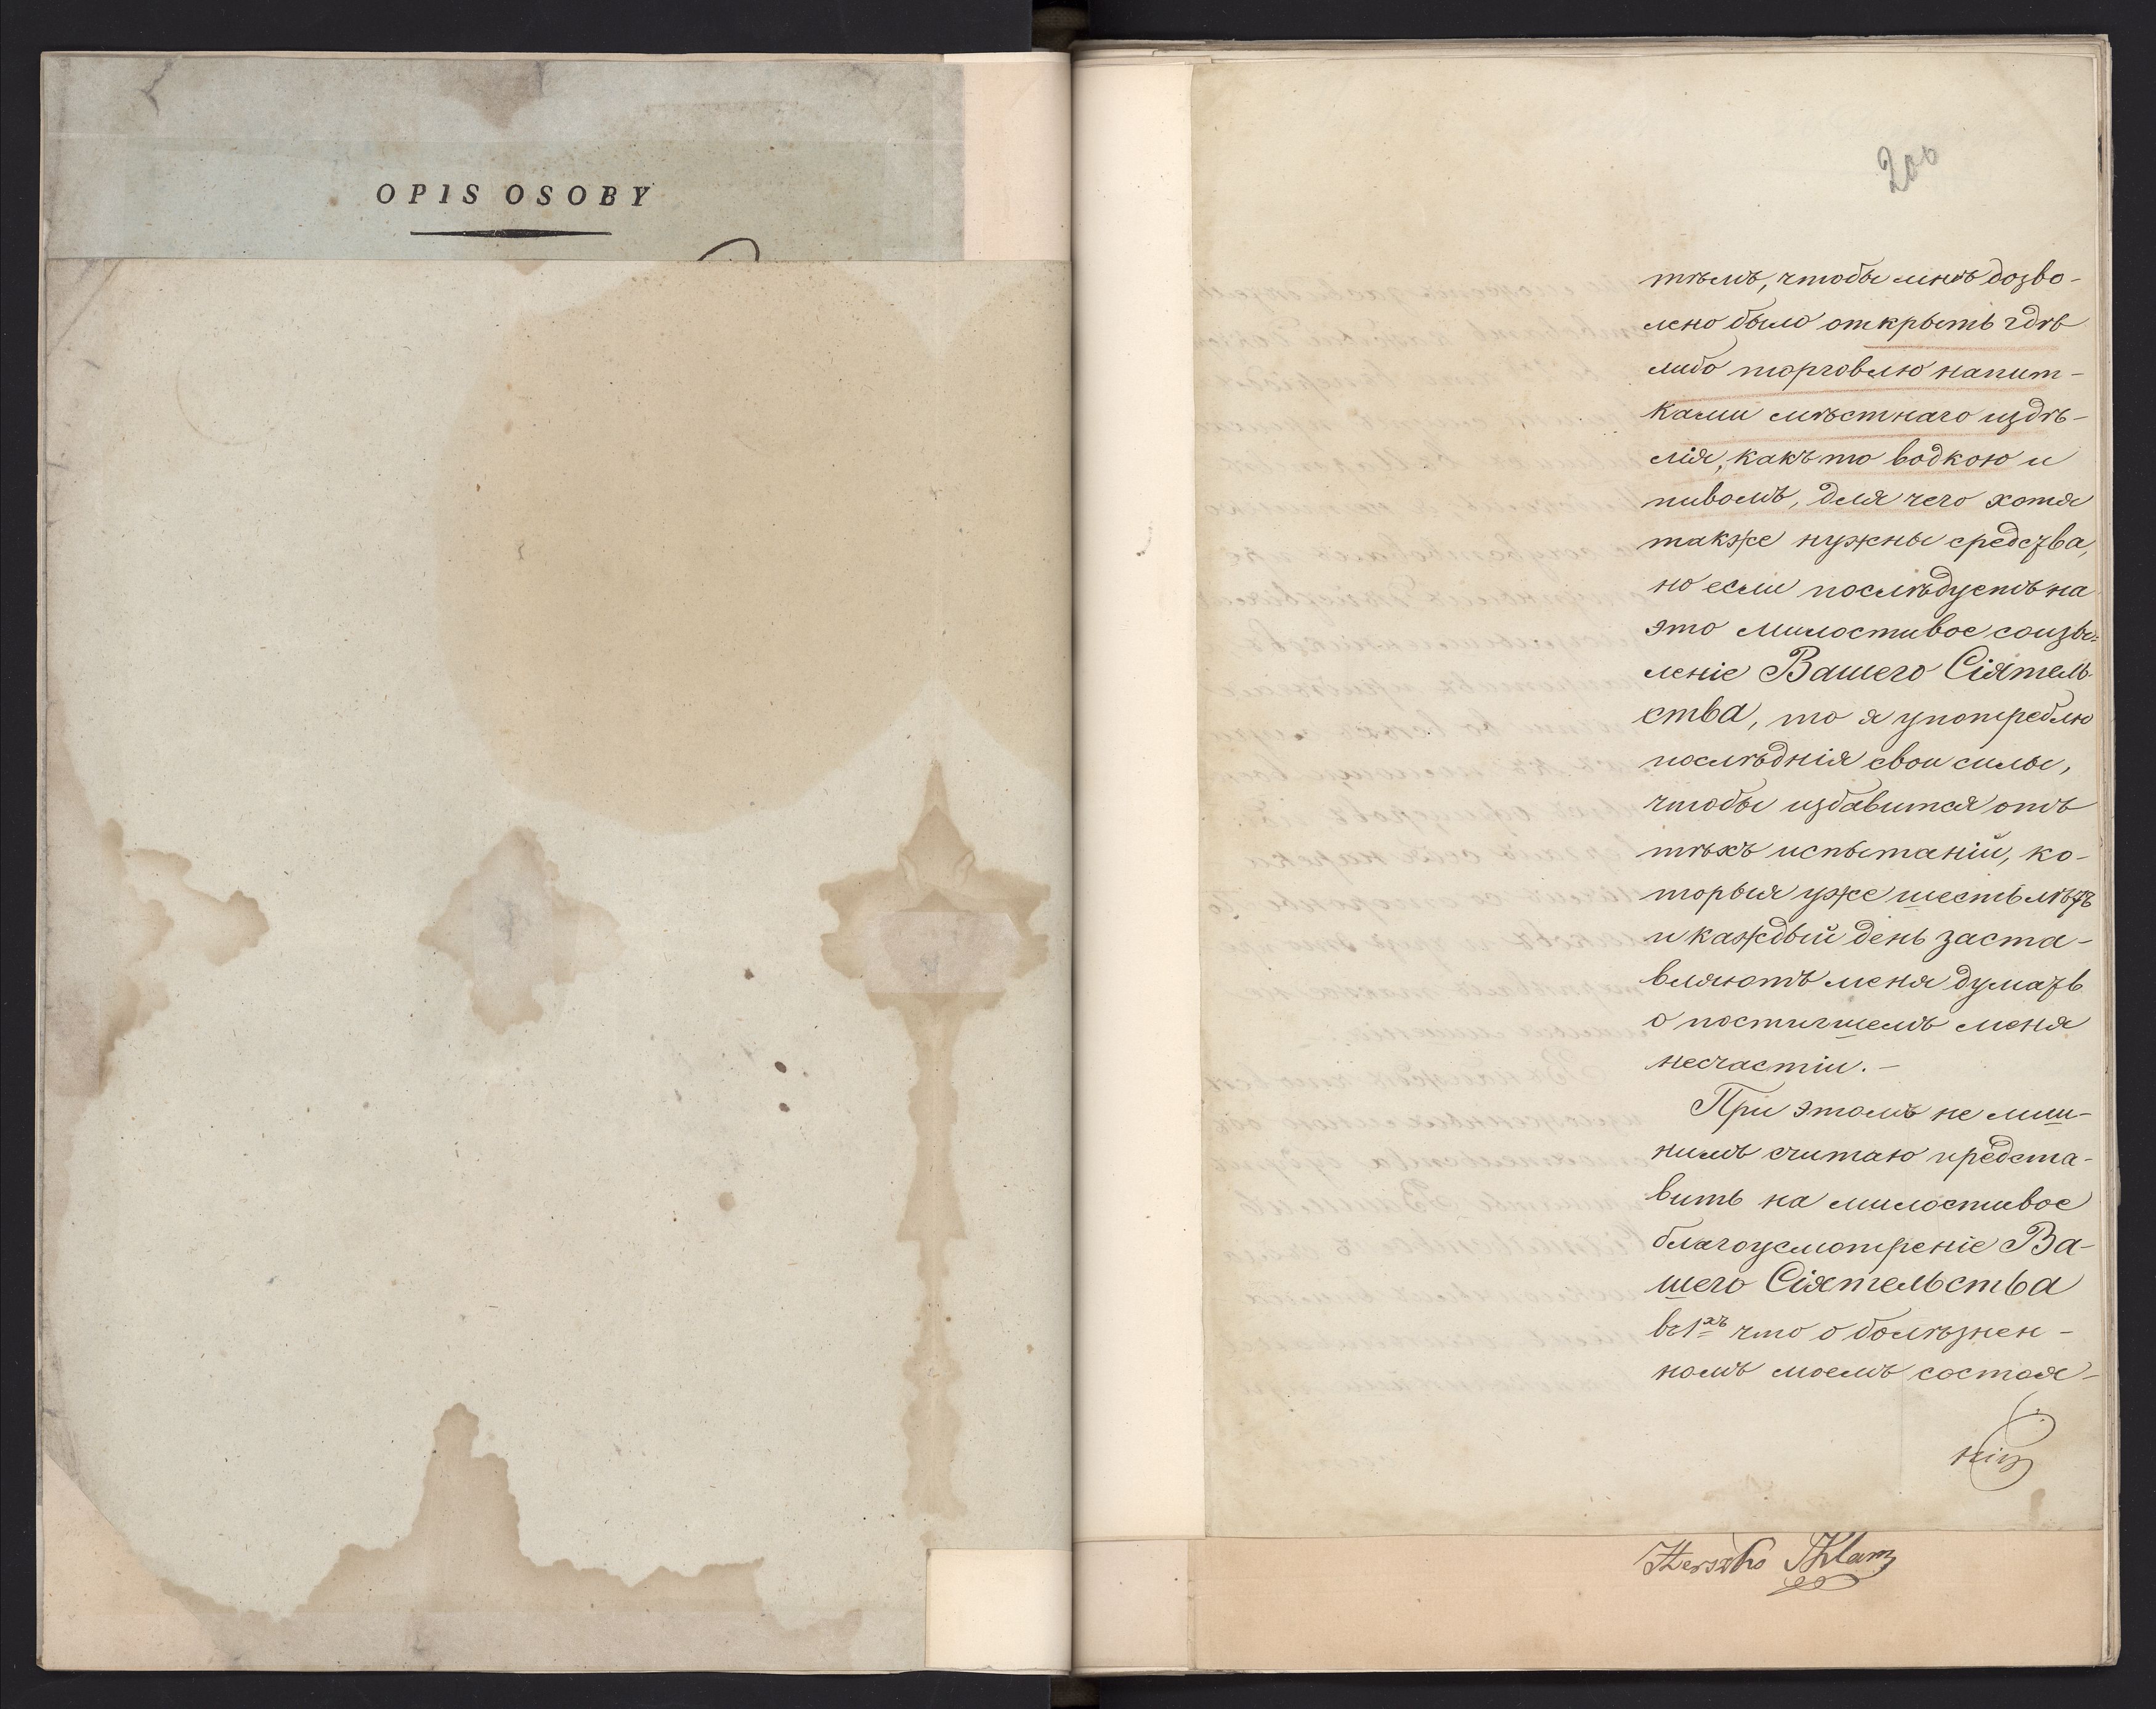 OPIS OSOBY
200
тѣмъ, чтобы мнѣ дозво-
лено было открыть гдѣ
либо торговлю напит-
ками мѣстнаго издѣ-
лія, какъ то водкою и
пивомъ, для чего хотя
также нужны средства,
но если послѣдуетъ на
это милостивое соизво-
леніе Вашего Сіятель-
ства, то я употреблю
послѣднія свои силы,
чтобы избавится отъ
тѣхъ испытаній, ко-
торыя уже шесть лѣтъ
и каждый день заста-
вляютъ меня думать
о постигшемъ меня
несчастіи. –
При этомъ не лиш-
нимъ считаю предста-
вить на милостивое
благоусмотреніе Ва-
шего Сіятельства
въ 1хъ что о болѣзнен-
номъ моемъ состоя-
ніи
Herszko